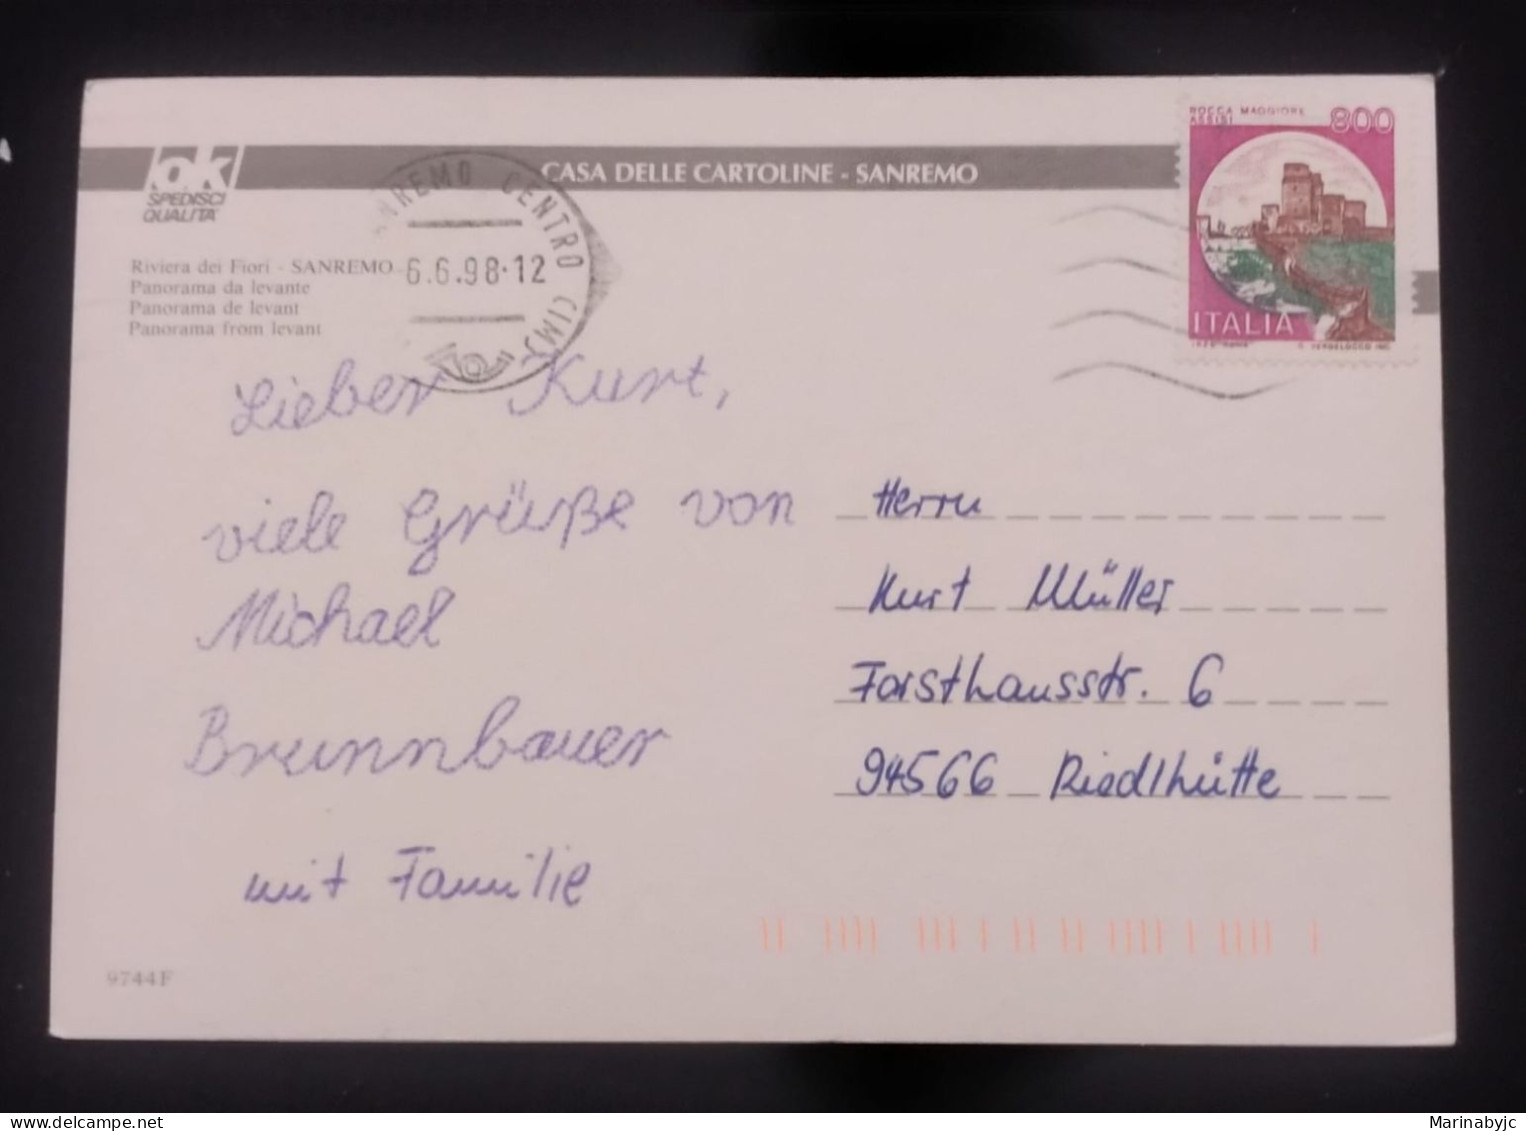 ROCCA MAGGIORE
ASSISI
800
ITALIA
ok
SPEDISCI
QUALITA'
CASA DELLE CARTOLINE - SANREMO
Riviera dei Fiori - SANREMO
Panorama da levante
Panorama de levant
Panorama from levant
SANREMO CENTRO (IM)
6.6.98-12
Lieber Kurt,
viele Grüße von
Michael
Brunnbauer
mit Familie
Herrn
Kurt Müller
Forsthausstr. 6
94566 Riedlhütte
9744F
Marinabyjc